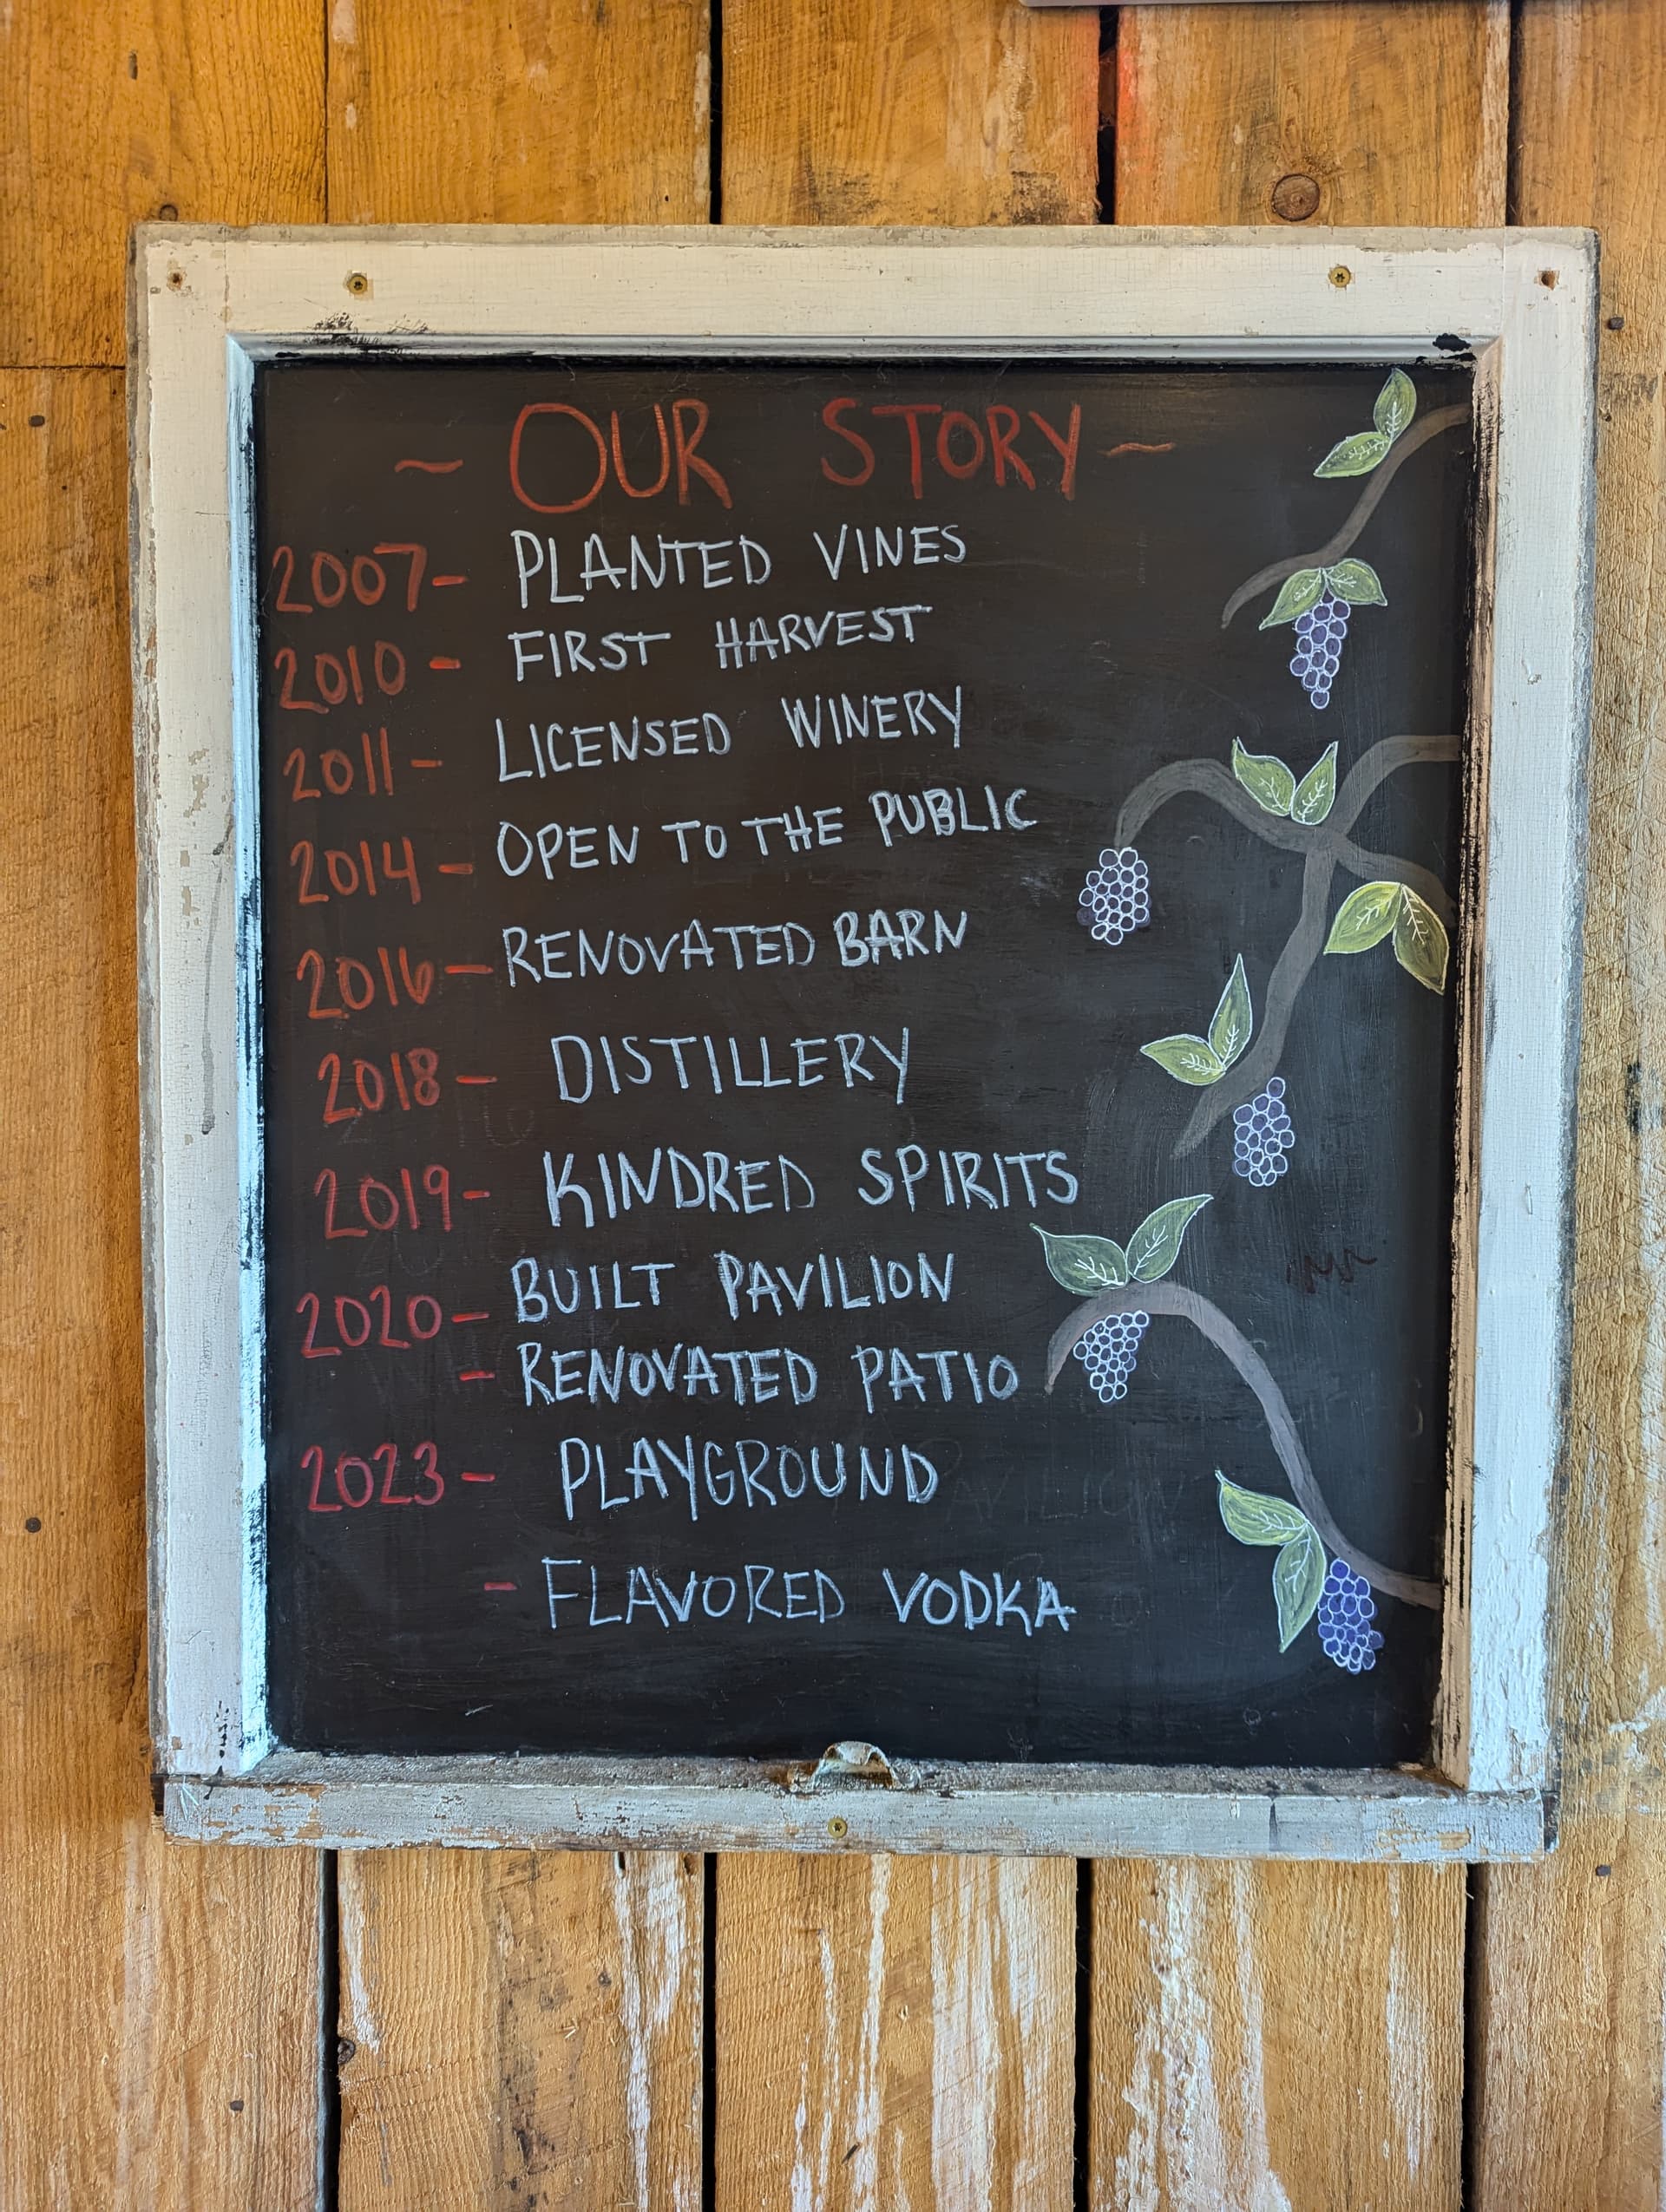 ~ OUR STORY ~
2007- PLANTED VINES
2010 - FIRST HARVEST
2011 - LICENSED WINERY
2014 - OPEN TO THE PUBLIC
2016 - RENOVATED BARN
2018 - DISTILLERY
2019 - KINDRED SPIRITS
2020 - BUILT PAVILION
- RENOVATED PATIO
2023 - PLAYGROUND
- FLAVORED VODKA